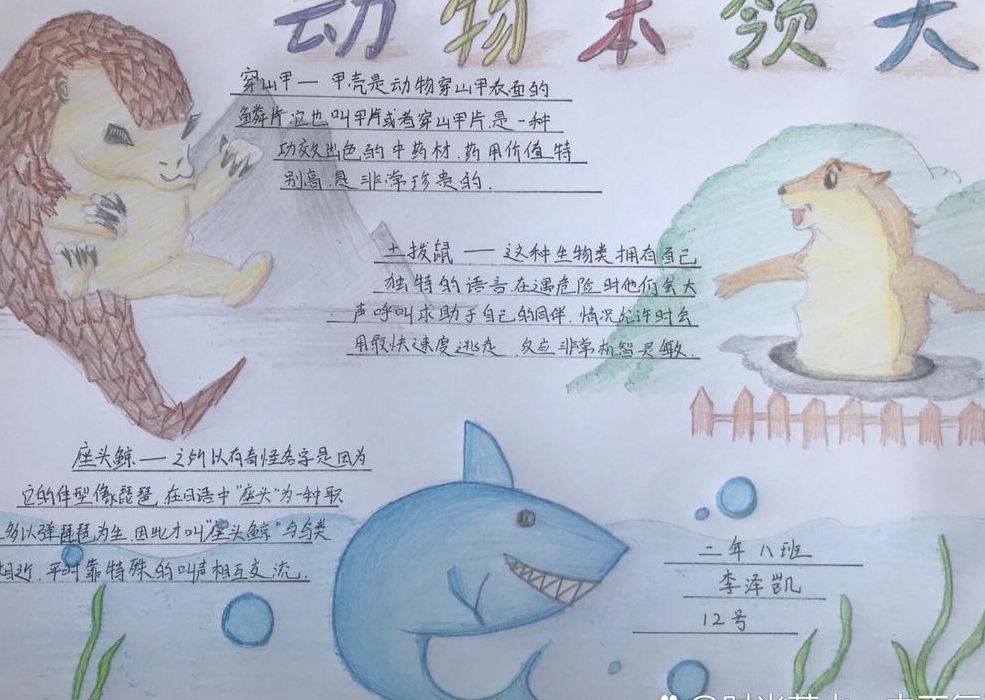 动物本领大
穿山甲—甲壳是动物穿山甲表面的
鳞片它也叫甲片或者穿山甲片.是一种
功效出色的中药材.药用价值特
别高.是非常珍贵的.
土拨鼠—这种生物类拥有自己
独特的语言在遇危险时他们会大
声呼叫求助于自己的同伴.情况允许时会
用最快速度逃走.反应非常机智灵敏.
座头鲸—之所以有奇怪名字是因为
它的体型像琵琶.在日语中"座头"为一种职
多以弹琵琶为生.因此才叫"座头鲸"与鸟类
相近.平时靠特殊的叫声相互交流.
二年八班
李泽凯
12号